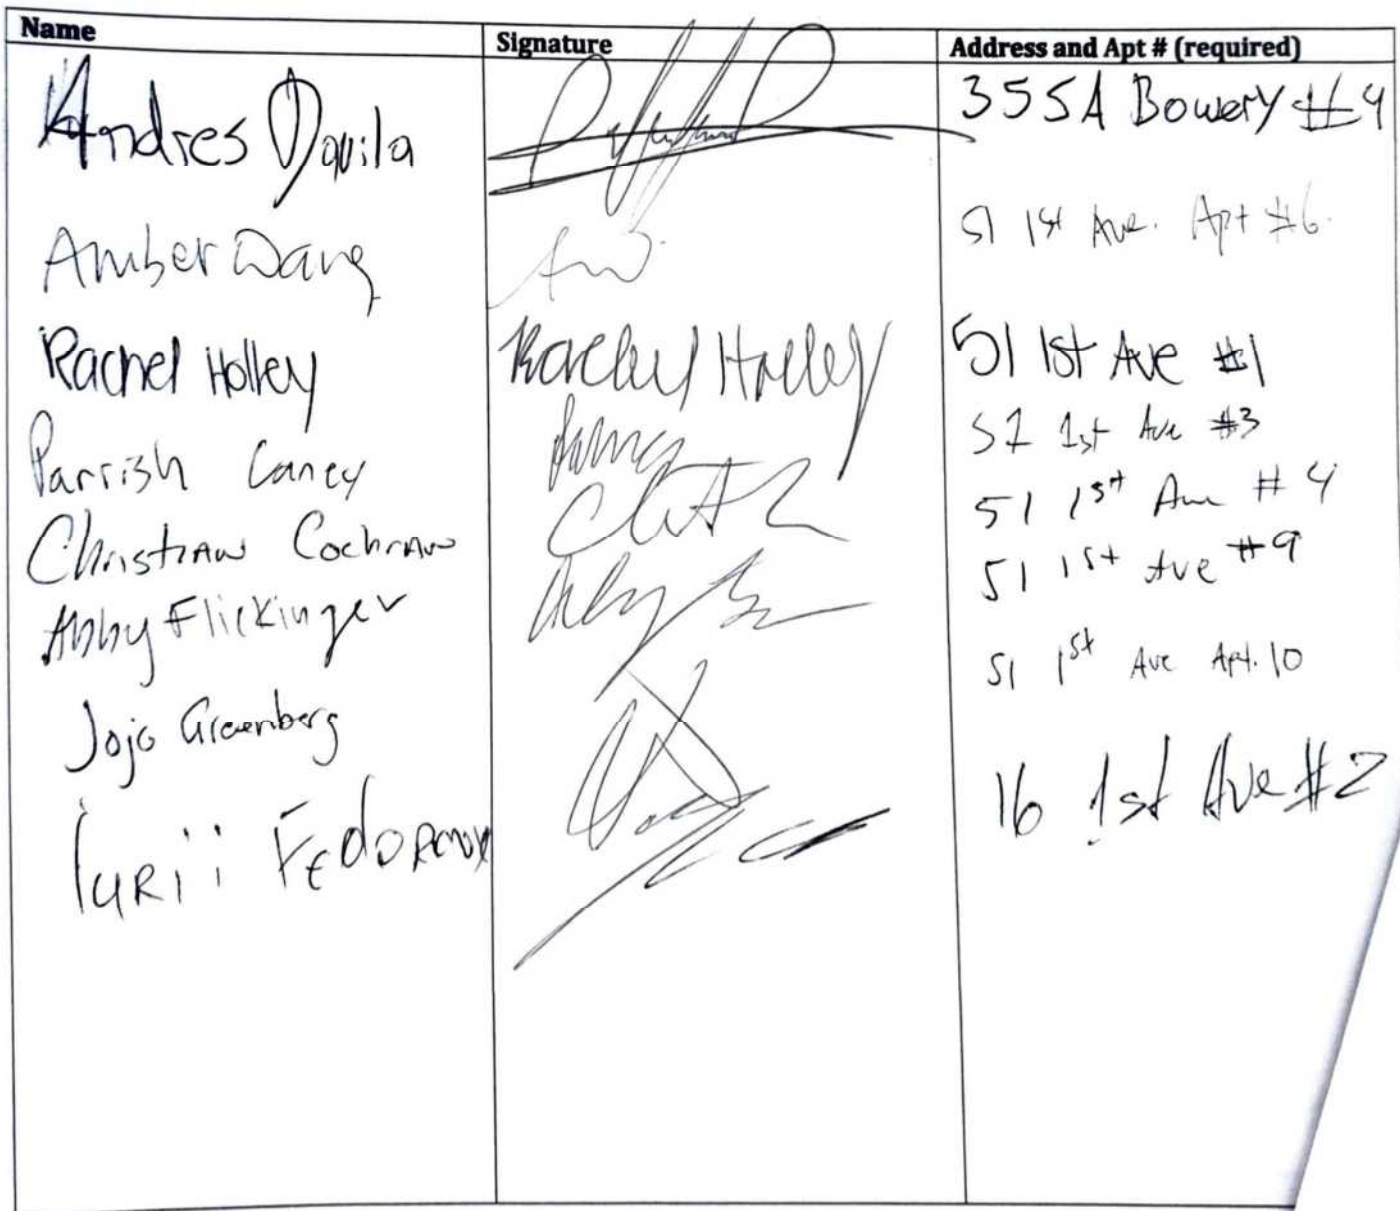 Name Signature Address and Apt # (required)
Andres Davila 355A Bowery #4
Amber Wang 51 1st Ave. Apt #6
Rachel Holley Rachel Holley 51 1st Ave #1
Parrish Caney 51 1st Ave #3
Christian Cochran 51 1st Ave #4
Abby Flickinger 51 1st Ave #9
Jojo Greenberg 51 1st Ave Apt. 10
Iurii 16 1st Ave #2